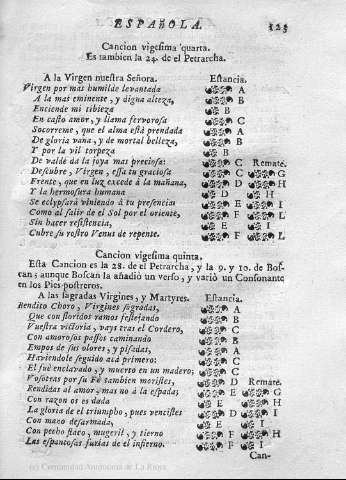 ESPAÑOLA. 323
Cancion vigesima quarta.
Es tambien la 24. de el Petrarcha.
A la Virgen nuestra Señora. Estancia.
Virgen por mas humilde levantada A
A la mas eminente, y digna alteza, B
Enciende mi tibieza B
En casto amor, y llama fervorosa C
Socorreme, que el alma está prendada A
De gloria vana, y de mortal belleza, B
Y por la vil torpeza B
De valde dá la joya mas preciosa: C Remate.
Descubre, Virgen, essa tu graciosa C G
Frente, que en luz excede à la mañana, D H
Y la hermosura humana D H
Se eclypsarà viniendo à tu presencia: E I
Como al salir de el Sol por el oriente, F L
Sin hacer resistencia, E I
Cubre su rostro Venus de repente. F L
Cancion vigesima quinta.
Esta Cancion es la 28. de el Petrarcha, y la 9. y 10. de Boscan; aunque Boscan la añadió un verso, y varió un Consonante
en los Pies postreros.
A las sagradas Virgines, y Martyres. Estancia.
Rendito Choro, Virgines sagradas, A
Que con floridos ramos festejando B
Vuestra victoria, vays tras el Cordero, C
Con amorosos passos caminando B
Empos de sus olores, y pisadas, A
Haviendole seguido acá primero: C
El fuè enclavado, y muerto en un madero; C
Vosotras por su Fè tambien moristes, D Remate.
Rendidas al amor, mas no à la espada; E G
Con razon os es dada E H
La gloria de el triumpho, pues vencistes D I
Con mano desarmada, E I
Con pecho flaco, mugeril, y tierno F H
Las espantosas furias de el infierno. F I
Can-
(c) Comunidad Autónoma de La Rioja